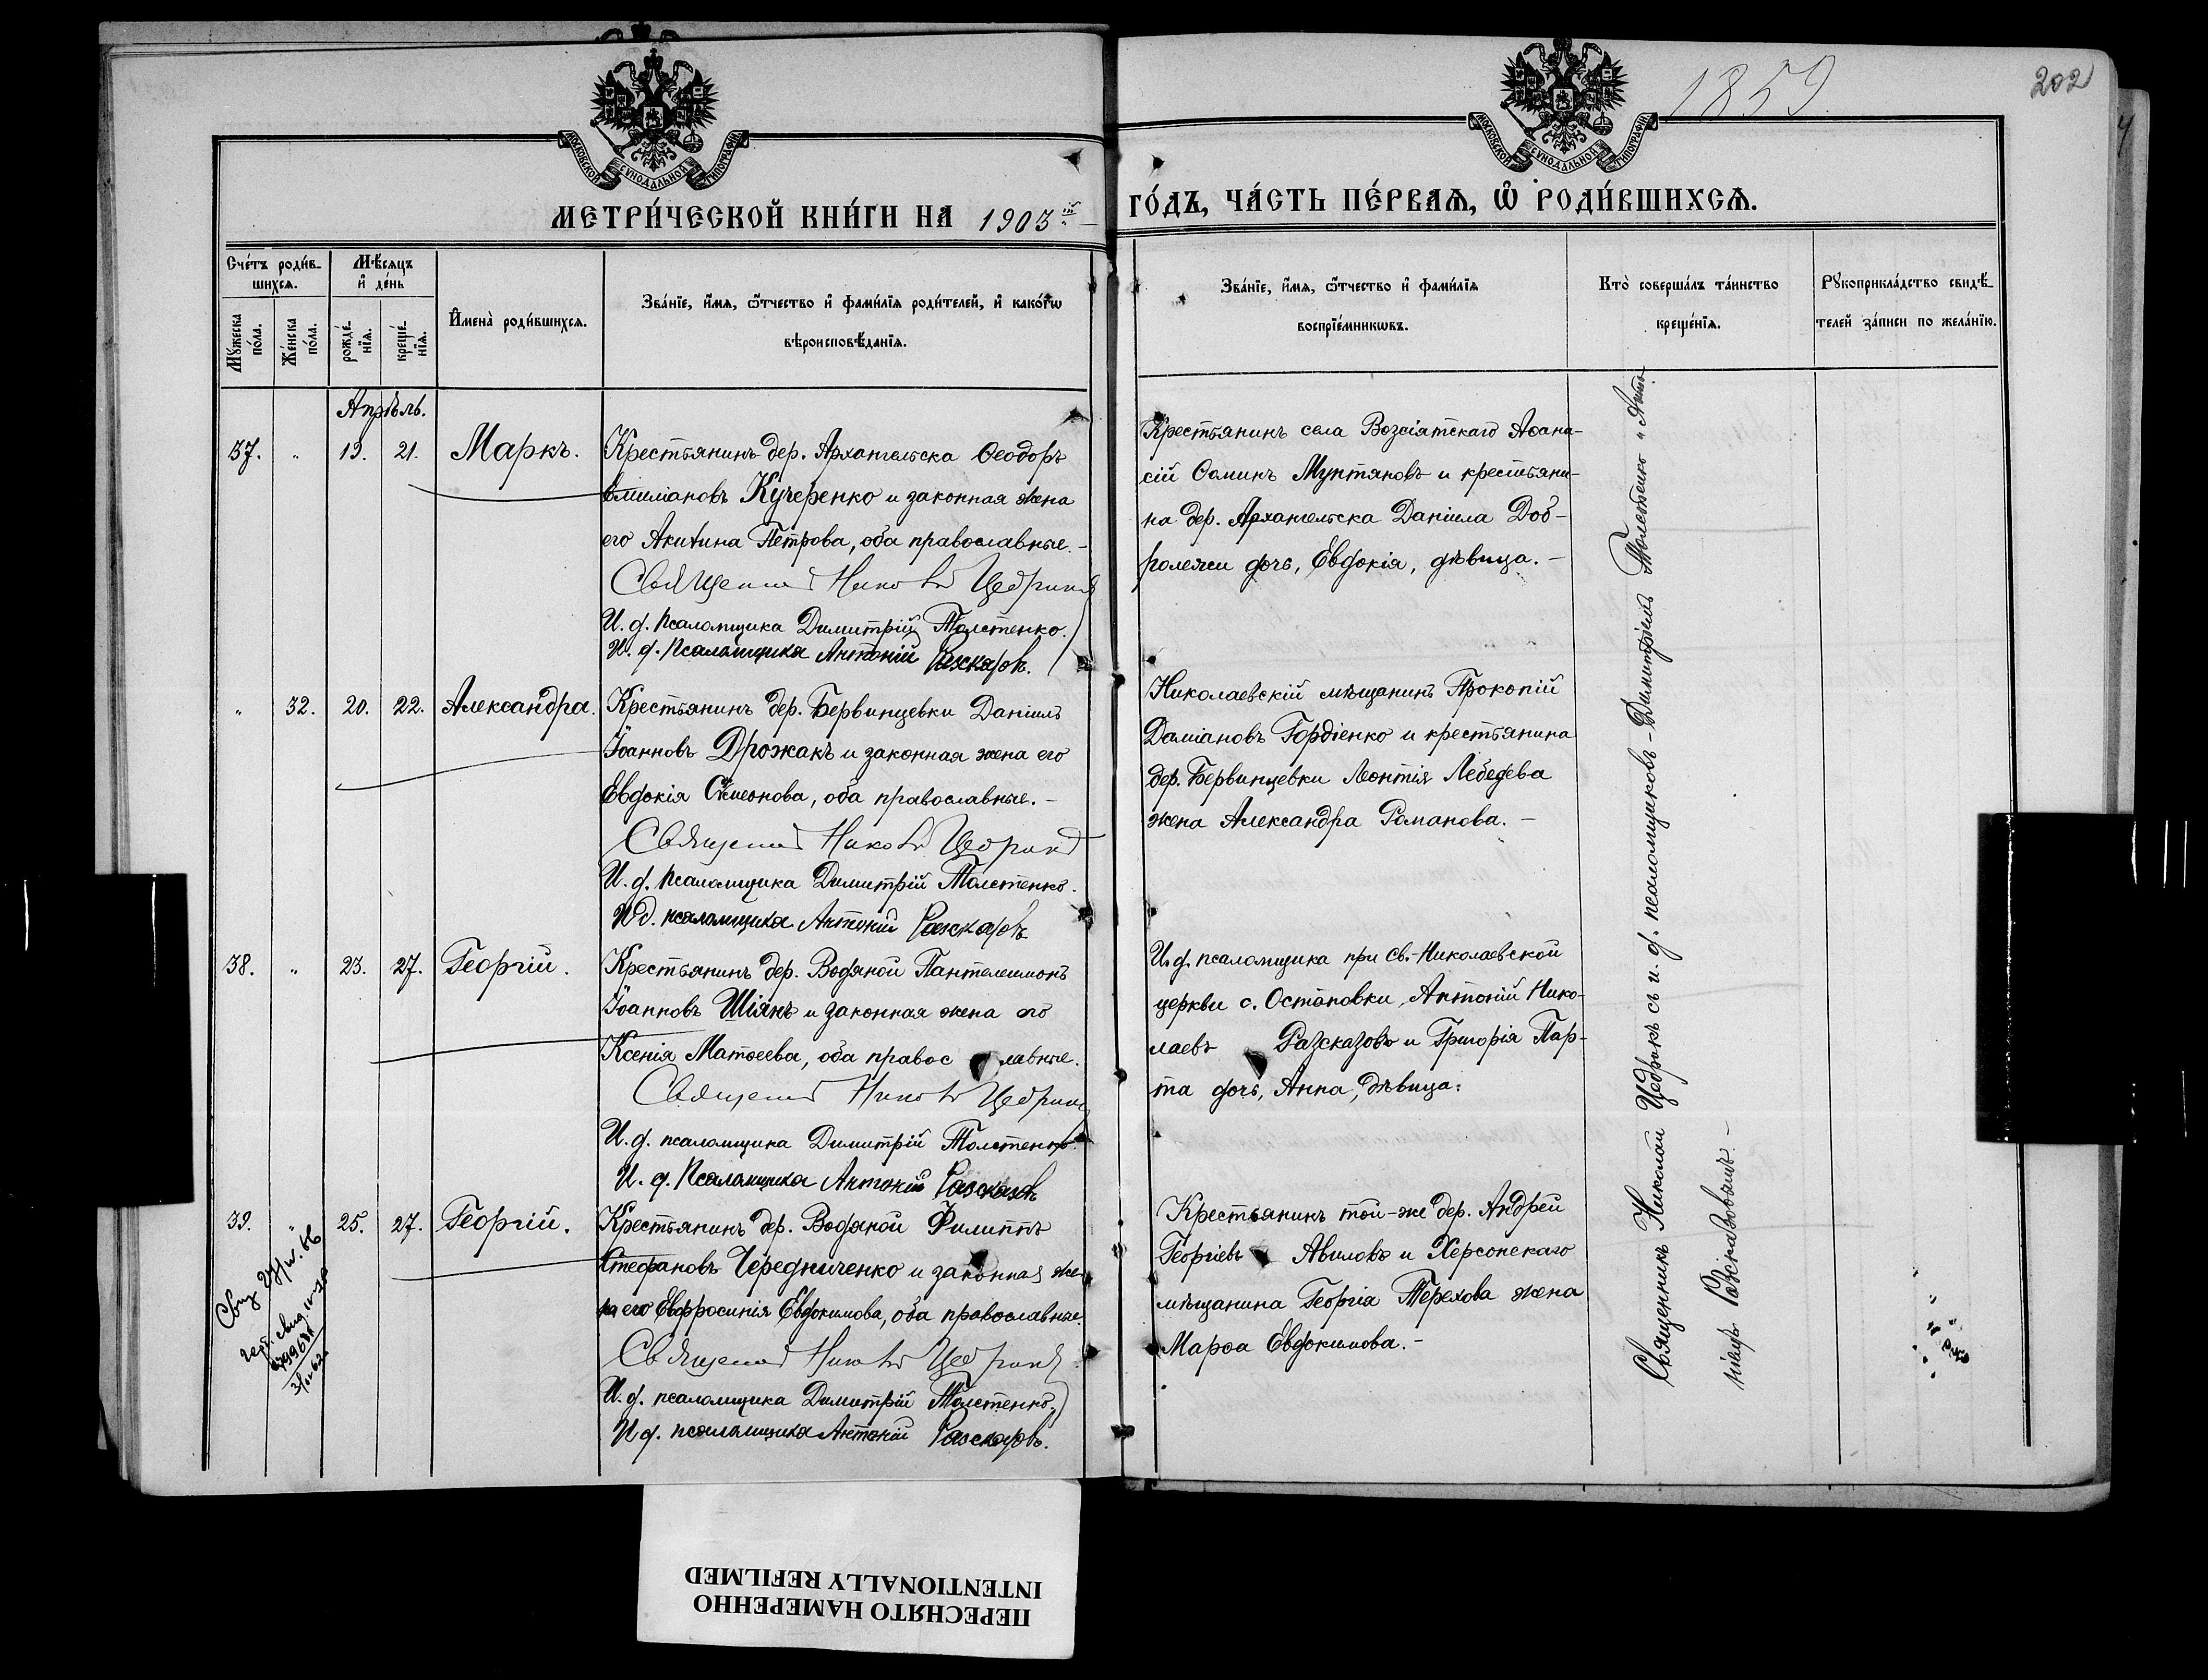 1859
202
МОСКОВСКОЙ СѴНОДАЛЬНОЙ ТИПОГРАФІИ
МОСКОВСКОЙ СѴНОДАЛЬНОЙ ТИПОГРАФІИ
МЕТРИ́ЧЕСКОЙ КНИ́ГИ НА 1903й
ГО́ДЪ, ЧА́СТЬ ПЕ́РВАѦ, Ѡ РОДИ́ВШИХСѦ.
Сче́тъ роди́в-
шихсѧ.
Мѣ́сѧцъ
и҆ де́нь
Мꙋ́жеска по́ла.
Же́нска по́ла.
рожде́нїѧ.
креще́нїѧ.
И҆мена̀ роди́вшихсѧ.
Зва́нїе, и҆́мѧ, ѻ҆́тчество и҆ фами́лїѧ роди́телей, и҆ како́гѡ
вѣроисповѣ́данїѧ.
Зва́нїе, и҆́мѧ, ѻ҆́тчество и҆ фами́лїѧ
воспрїе́мникѡвъ.
Кто̀ соверша́лъ та́инство
креще́нїѧ.
Рꙋкоприкла́дство свидѣ́-
телей за́писи по жела́нїю.
Апрѣль.
37. " 19. 21. Маркъ.
Крестьянинъ дер. Архангельска Ѳеодоръ
Емиліановъ Кучеренко и законная жена
его Акилина Петрова, оба православные.-
Священник Никол Цедрик
И. д. псаломщика Димитрій Толстенко.
И. д. Псаломщика Антоній Разсказовъ.
Крестьянинъ села Возсіятскаго Аѳана-
сій Ѳоминъ Мунтяновъ и крестьяни-
на дер. Архангельска Даніила Доб-
ролежи дочь, Евдокія, дѣвица.-
" 32. 20. 22. Александра.
Крестьянинъ дер. Бервинцевки Даніилъ
Іоанновъ Дрожакъ и законная жена его
Евдокія Симеонова, оба православные.-
Священник Никол Цедрик
И. д. псаломщика Димитрій Толстенко.
И д. псаломщика Антоній Разсказовъ
Николаевскій мѣщанинъ Прокопій
Даміановъ Гордіенко и крестьянина
дер. Бервинцевки Леонтія Лебедева
жена Александра Романова.-
38. " 23. 27. Георгій.
Крестьянинъ дер. Водяной Пантелеимонъ
Іоанновъ Шіянъ и законная жена его
Ксенія Матѳеева, оба православные.
Священник Никол Цедрик
И. д. псаломщика Димитрій Толстенко.
И. д. Псаломщика Антоній Разсказовъ
И. д. псаломщика при Св.-Николаевской
церкви с. Остановки, Антоній Нико-
лаевъ Разсказовъ и Григорія Пар-
та дочь, Анна, дѣвица.
39. " 25. 27. Георгій.
Крестьянинъ дер. Водяной Филиппъ
Стефановъ Чередниченко и законная же-
на его Евфросинія Евдокимова, оба православные.
Священник Никол Цедрик
И. д. псаломщика Димитрій Толстенко,
И д. псаломщика Антоній Разсказовъ.
Крестьянинъ той-же дер. Андрей
Георгіевъ Авиловъ и Херсонскаго
мѣщанина Георгія Терехова жена
Марѳа Евдокимова.-
Священникъ Николай Цедрикъ съ и. д. псаломщиковъ - Димитріемъ Толстенко и Анто-
ніемъ Разсказовымъ.-
ПЕРЕСНЯТО НАМЕРЕННО
INTENTIONALLY REFILMED